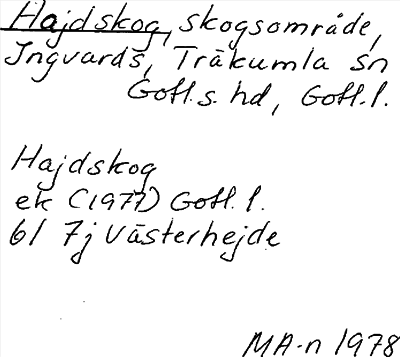 Hajdskog, skogsområde,
Ingvards, Träkumla sn
Gotl.s. hd, Gotl.l.
Hajdskog
ek (1977) Gotl. l.
6I 7j Västerhejde
MA-n 1978